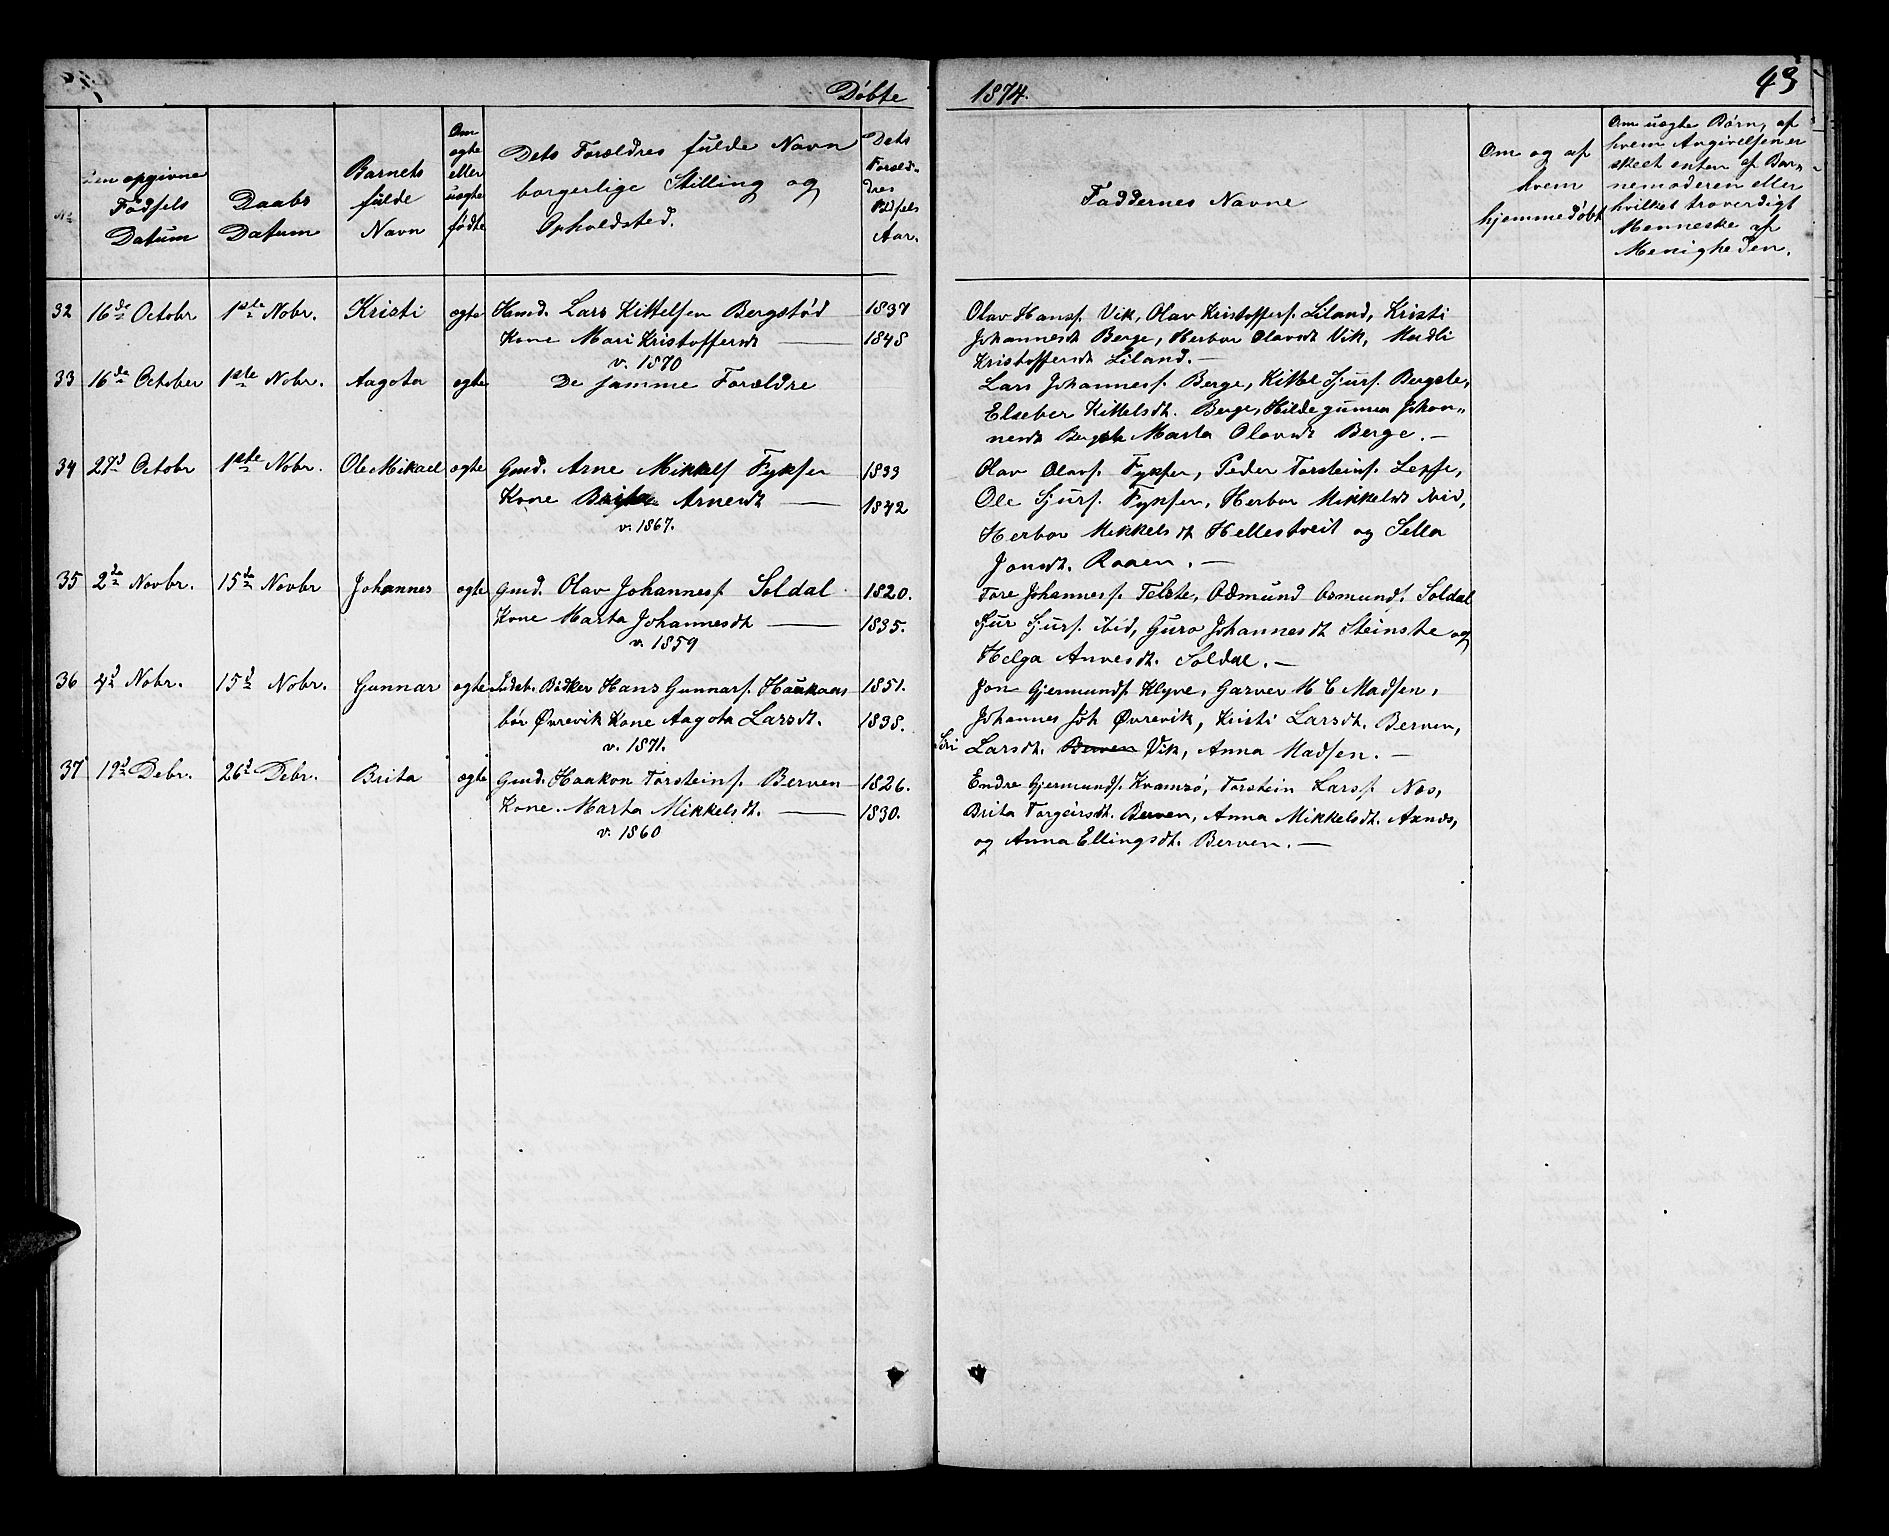 Døbte
1874.
43
No
Den opgivne Fødsels Datum
Daabs Datum
Barnets fulde Navn
Om ægte eller uægte fødte
Dets Forældres fulde Navn borgerlige Stilling og Opholdsted.
Dets Forældres Fødsels Aar.
Faddernes Navne
Om og af hvem hjemmedøbt
Om uægte Børn, af hvem Angivelsen er skeet enten af Barnemoderen eller hvilket troverdigt Menneske af Menigheden.
32 16de Octobr 1ste Nobr. Kristi ægte Hmd. Lars Kittelsen Bergstød 1837
Kone Mari Kristoffersdt —— 1848
v. 1870
Olav Hansf. Vik, Olav Kristoffersf. Liland, Kristi
Johannesdt Berge, Herbor Olavsdt Vik, Madli
Kristoffersdt Liland. —
33 16de October 1ste Nobr. Aagota ægte De samme Forældre
Lars Johannesf. Berge, Kittel Sjurf. Bergste,
Elseber Kittelsdt. Berge, Hildegunna Johan„
nesdt Bergste Marta Olavsdt Berge. —
34 27d Octobr 1ste Nobr. Ole Mikael ægte Gmd. Arne Mikkelsf Fyksen 1833
Kone Brita Arnesdt —— 1842
v. 1867.
Olav Olavf. Fyksen, Peder Torsteinf. Lepse,
Ole Sjurf. Fyksen, Herbor Mikkelsdt ibid,
Herbor Mikkelsdt Hellestveit og Sella
Jonsdt. Raaen. —
35 2de Novbr. 15de Novbr Johannes ægte Gmd. Olav Johannesf. Soldal 1820.
Kone Marta Johannesdt —— 1835.
v. 1859
Tore Johannesf. Telste, Odmund Osmundf. Soldal
Sjur Sjurf. ibid, Guro Johannesdt Steinste og
Helga Arnesdt. Soldal. —
36 4d Nobr. 15d Nobr. Gunnar ægte Indeb. Bødker Hans Gunnarf. Haukaas 1851.
bør Øvrevik Kone Aagota Larsdt. 1838.
v. 1871.
Jon Gjermundf. Klyve, Garver M C Madsen,
Johannes Joh Øvrevik, Kristi Larsdt. Berven,
Siri Larsdt. Berven Vik, Anna Madsen. —
37 19d Debr. 26d Debr. Brita ægte Gmd. Haakon Torsteinf. Berven 1826.
Kone. Marta Mikkelsdt. —— 1830.
v. 1860
Endre Gjermundf. Kvamsø, Torstein Larsf. Nes,
Brita Torgeirsdt. Berven, Anna Mikkelsdt. Axnes,
og Anna Ellingsdt. Berven. —